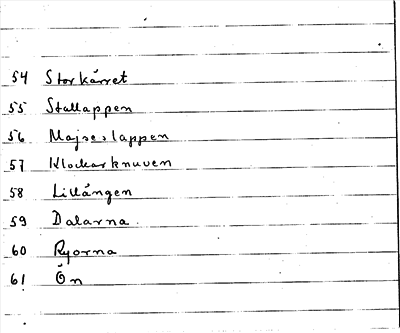 54 Storkärret
55 Stallappen
56 Majseslappen
57 Klockarknuven
58 Lillängen
59 Dalarna
60 Ryorna
61 Ön